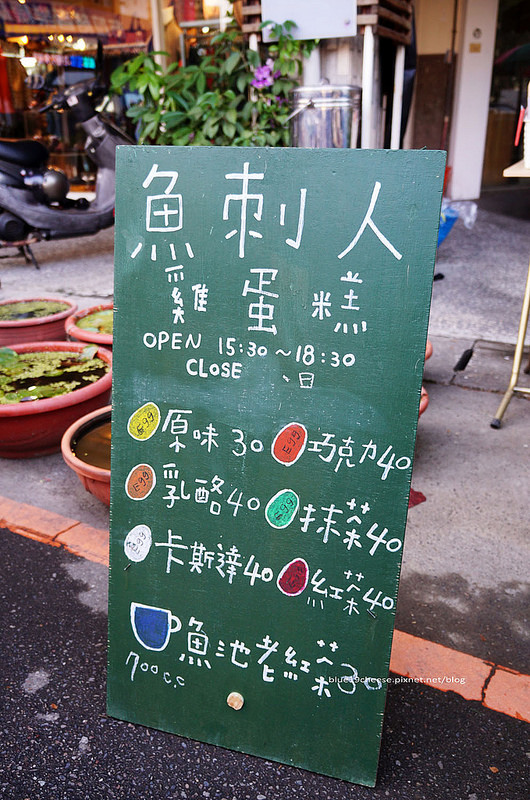 魚刺人
雞蛋糕
OPEN 15:30～18:30
CLOSE 、日
Egg 原味 30 Egg 巧克力40
Egg 乳酪40 Egg 抹茶40
Egg 卡斯達40 Egg 紅茶40
魚池老紅茶30
700c.c
blue19cheese.pixnet.net/blog